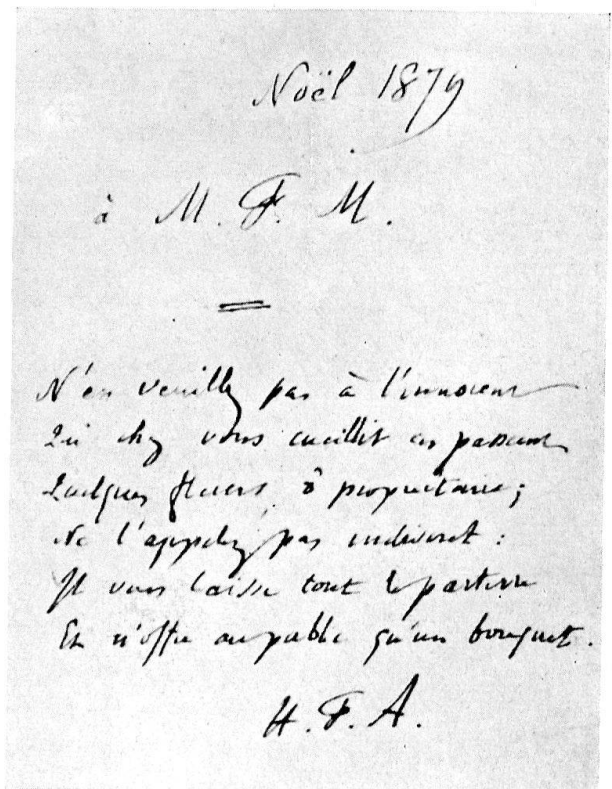 Noël 1879
à M. F. M.
N'en veuillez pas à l'innocent
Qui chez vous cueillit en passant
Quelques fleurs ô propriétaire ;
Ne l'appelez pas indiscret :
Il vous laisse tout le parterre
Et n'offre au public qu'un bouquet.
H. F. A.